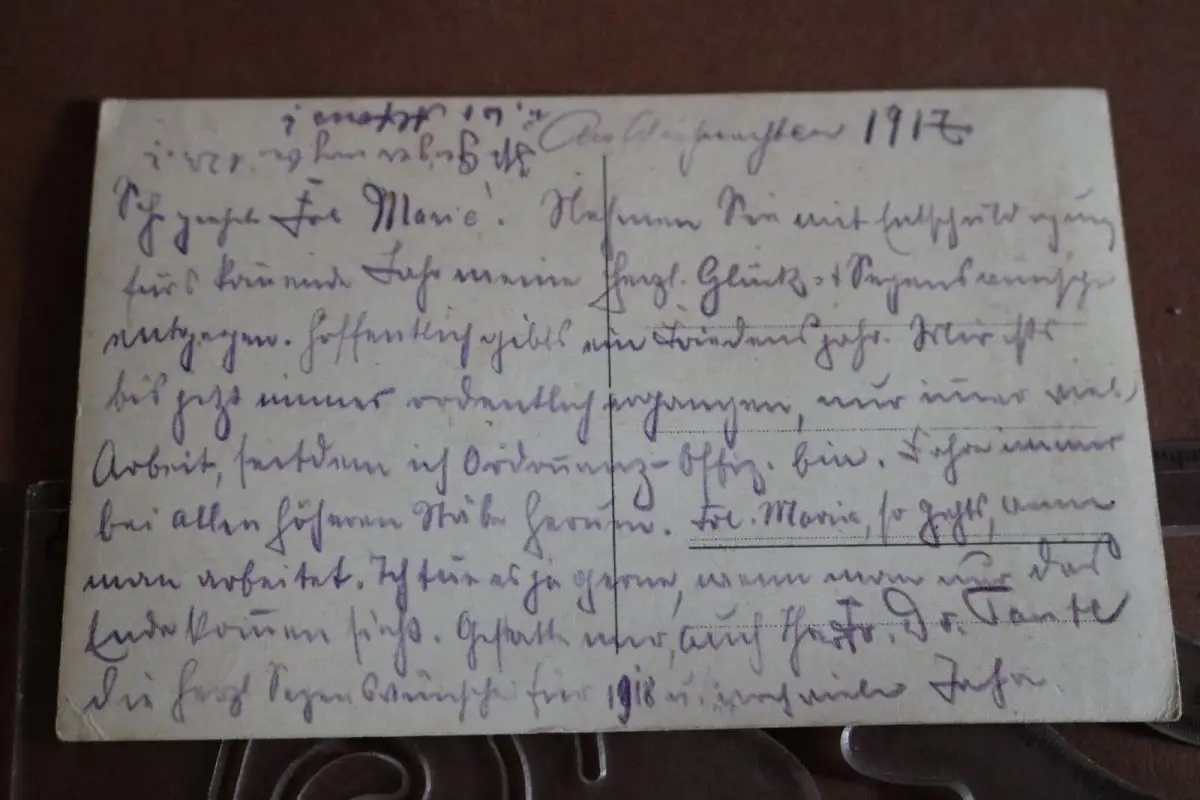 An Weihnachten 1917
Sehr geehrte Frl Marie! Nehmen Sie mit Entschuldigung
fürs kom̅ende Jahr meine herzl. Glück- & Segenswünsche
entgegen. Hoffentlich gibts ein Friedensjahr. Mir ists
bis jetzt immer ordentlich ergangen, nur im̅er viel
Arbeit, seitdem ich Ordonnanz-Offiz. bin. Fahre immer
bei allen höheren Stäbe herum. Frl. Marie, so gehts, wenn
man arbeitet. Ich tue es ja gerne, wenn man nur das
Ende kom̅en sieht. Gestatten mir, auch Ihrer Fr. Dr. Tante
die herzl Segenswünsche für 1918 u. noch viele Jahre